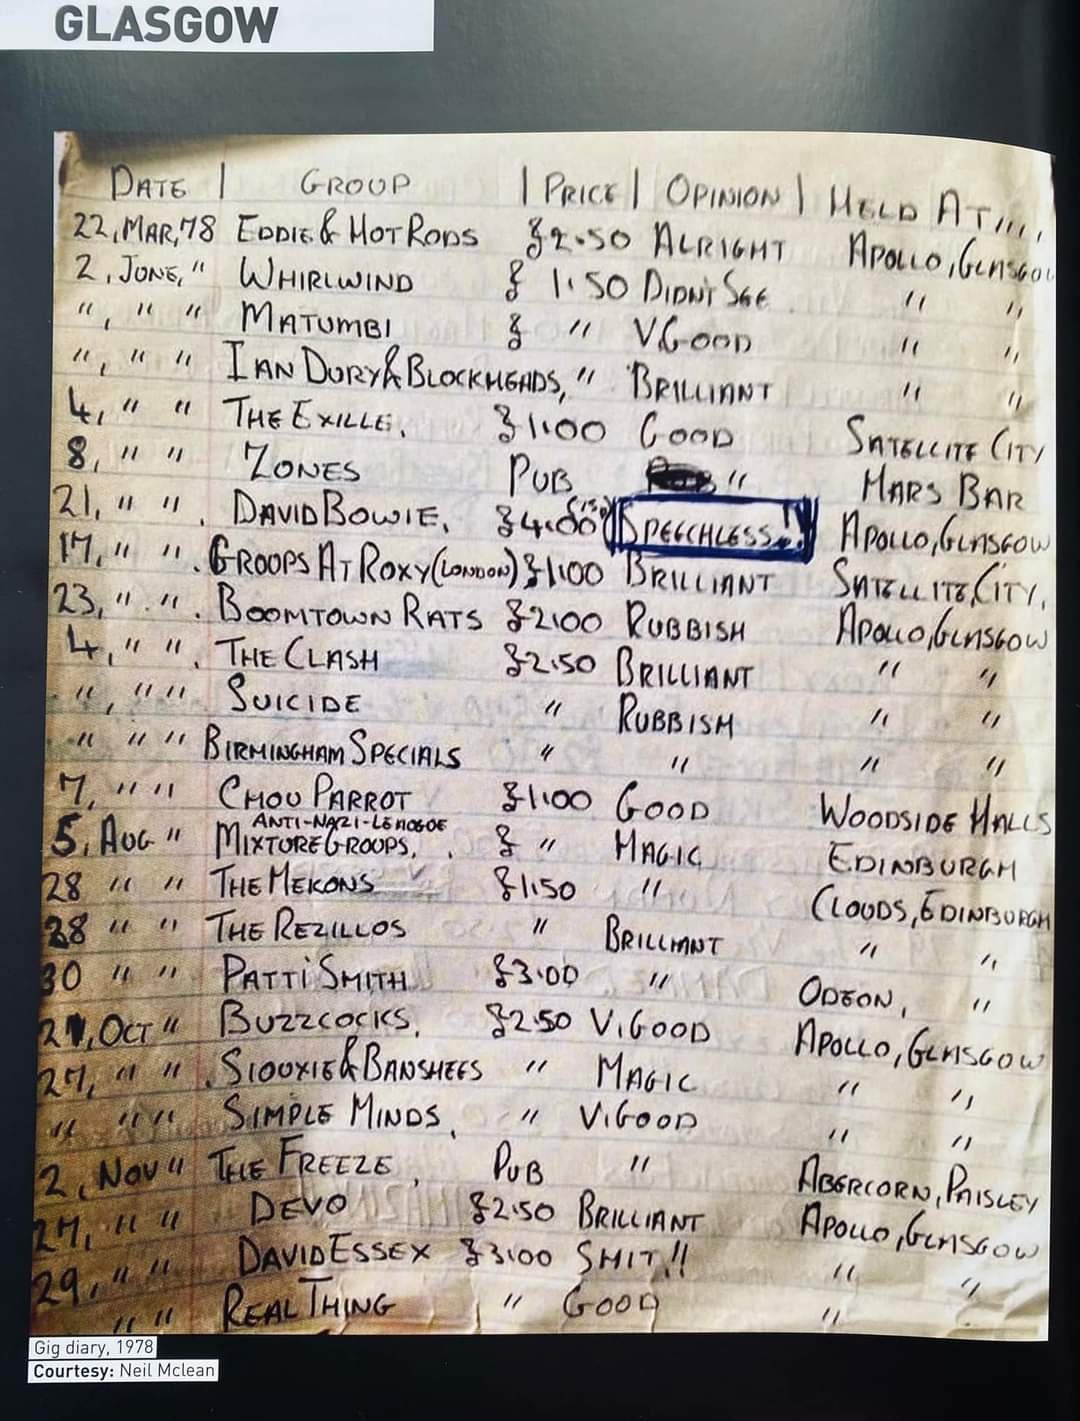 GLASGOW
DATE | GROUP | PRICE | OPINION | HELD AT,,,,
22, MAR, 78 EDDIE & HOT RODS £2.50 ALRIGHT APOLLO, GLASGOW
2, JUNE, " WHIRLWIND £ 1.50 DIDN'T SEE " "
", " " MATUMBI £ " V GOOD " "
", " " IAN DURY & BLOCKHEADS, " BRILLIANT " "
4, " " THE EXILLE. £1.00 GOOD SATELLITE CITY
8, " " ZONES PUB " MARS BAR
21, " " . DAVID BOWIE. £4.00 SPEECHLESS..!! APOLLO, GLASGOW
17, " " . GROUPS AT ROXY (LONDON) £1.00 BRILLIANT SATELLITE, CITY,
23, " " . BOOMTOWN RATS £2.00 RUBBISH APOLLO, GLASGOW
4, " " . THE CLASH £2.50 BRILLIANT " "
", " " SUICIDE " RUBBISH " "
" " " BIRMINGHAM SPECIALS " " " "
7, " " CHOU PARROT £1.00 GOOD WOODSIDE HALLS
ANTI-NAZI-LEAGUE
5, AUG " MIXTURE GROUPS. . £ " MAGIC EDINBURGH
28 " " THE MEKONS £1.50 " CLOUDS, EDINBURGH
28 " " THE REZILLOS " BRILLIANT " "
30 " " PATTI SMITH £3.00 " ODEON, "
21, OCT " BUZZCOCKS. £2.50 V.GOOD APOLLO, GLASGOW
27, " " . SIOUXIE & BANSHEES " MAGIC " "
" " " SIMPLE MINDS. " V.GOOD " "
2, NOV " THE FREEZE, PUB " ABERCORN, PAISLEY
27, " " DEVO £2.50 BRILLIANT APOLLO, GLASGOW
29, " " DAVID ESSEX £3.00 SHIT.!! " "
" " REAL THING " GOOD "
Gig diary, 1978
Courtesy: Neil Mclean